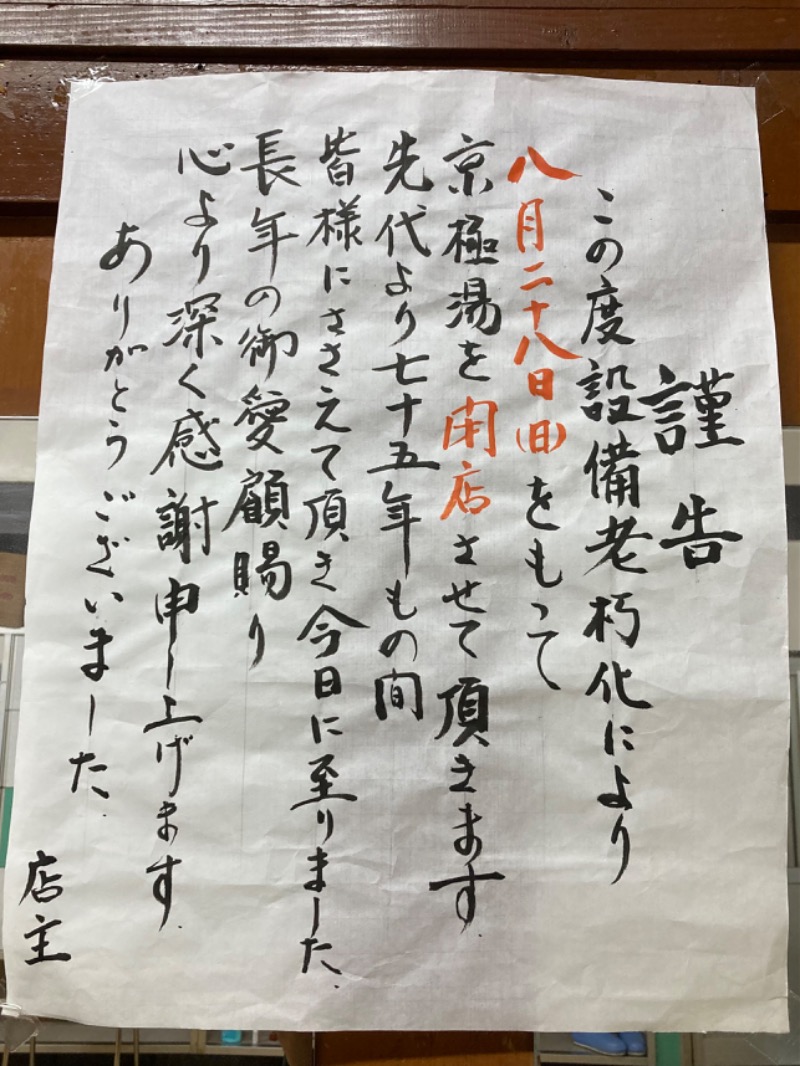 謹告
この度設備老朽化により
八月二十八日(日)をもって
京極湯を閉店させて頂きます
先代より七十五年もの間
皆様にささえて頂き今日に至りました、
長年の御愛顧賜り
心より深く感謝申し上げます
ありがとうございました、
店主